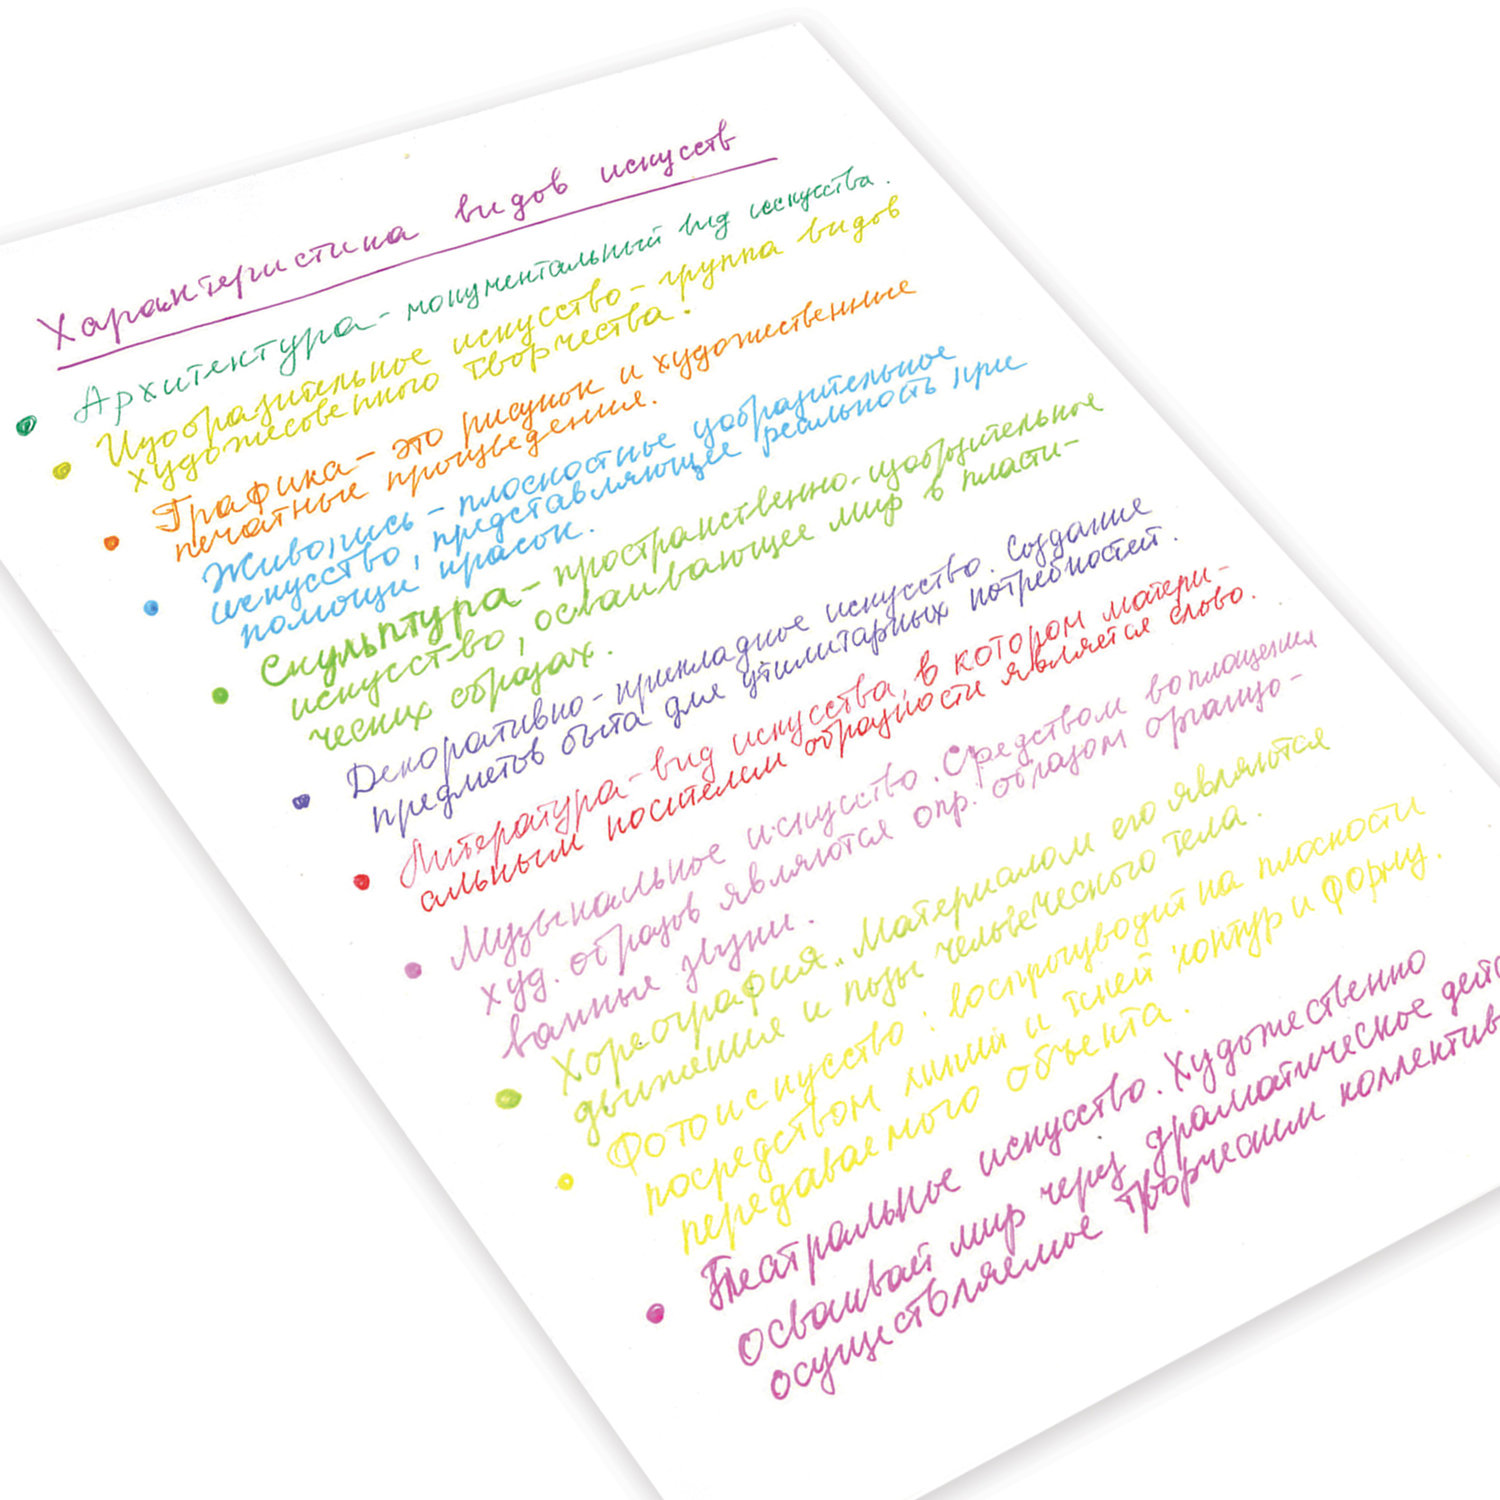 Характеристика видов искусств
Архитектура - монументальный вид искусства.
Изобразительное искусство - группа видов
художесовенного творчества.
Графика - это рисунок и художественные
печатные произведения.
Живопись - плоскостное изобразительное
искусство, представляющее реальность при
помощи красок.
Скульптура - пространственно-изобразительное
искусство, осваивающее мир в пласти-
ческих образах.
Декоративно-прикладное искусство. Создание
предметов быта для утилитарных потребностей.
Литература - вид искусства, в котором матери-
альным носителем образности является слово.
Музыкальное искусство. Средством воплощения
худ. образов являются опр. образом организо-
ванные звуки.
Хореография. Материалом его являются
движения и позы человеческого тела.
Фотоискусство: воспроизводит на плоскости
посредством линий и теней контур и форму
передаваемого объекта.
Театральное искусство. Художественно
осваивает мир через драматическое дейс
осуществляемое творческим коллектив